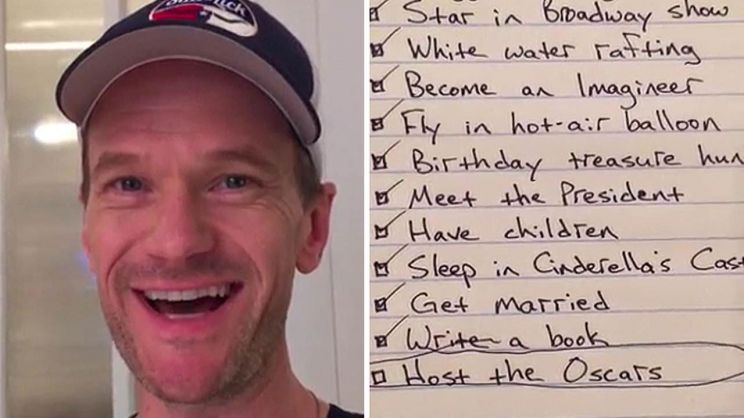 Star in Broadway show
White water rafting
Become an Imagineer
Fly in hot-air balloon
Birthday treasure hun
Meet the President
Have children
Sleep in Cinderella's Cast
Get married
Write a book
Host the Oscars